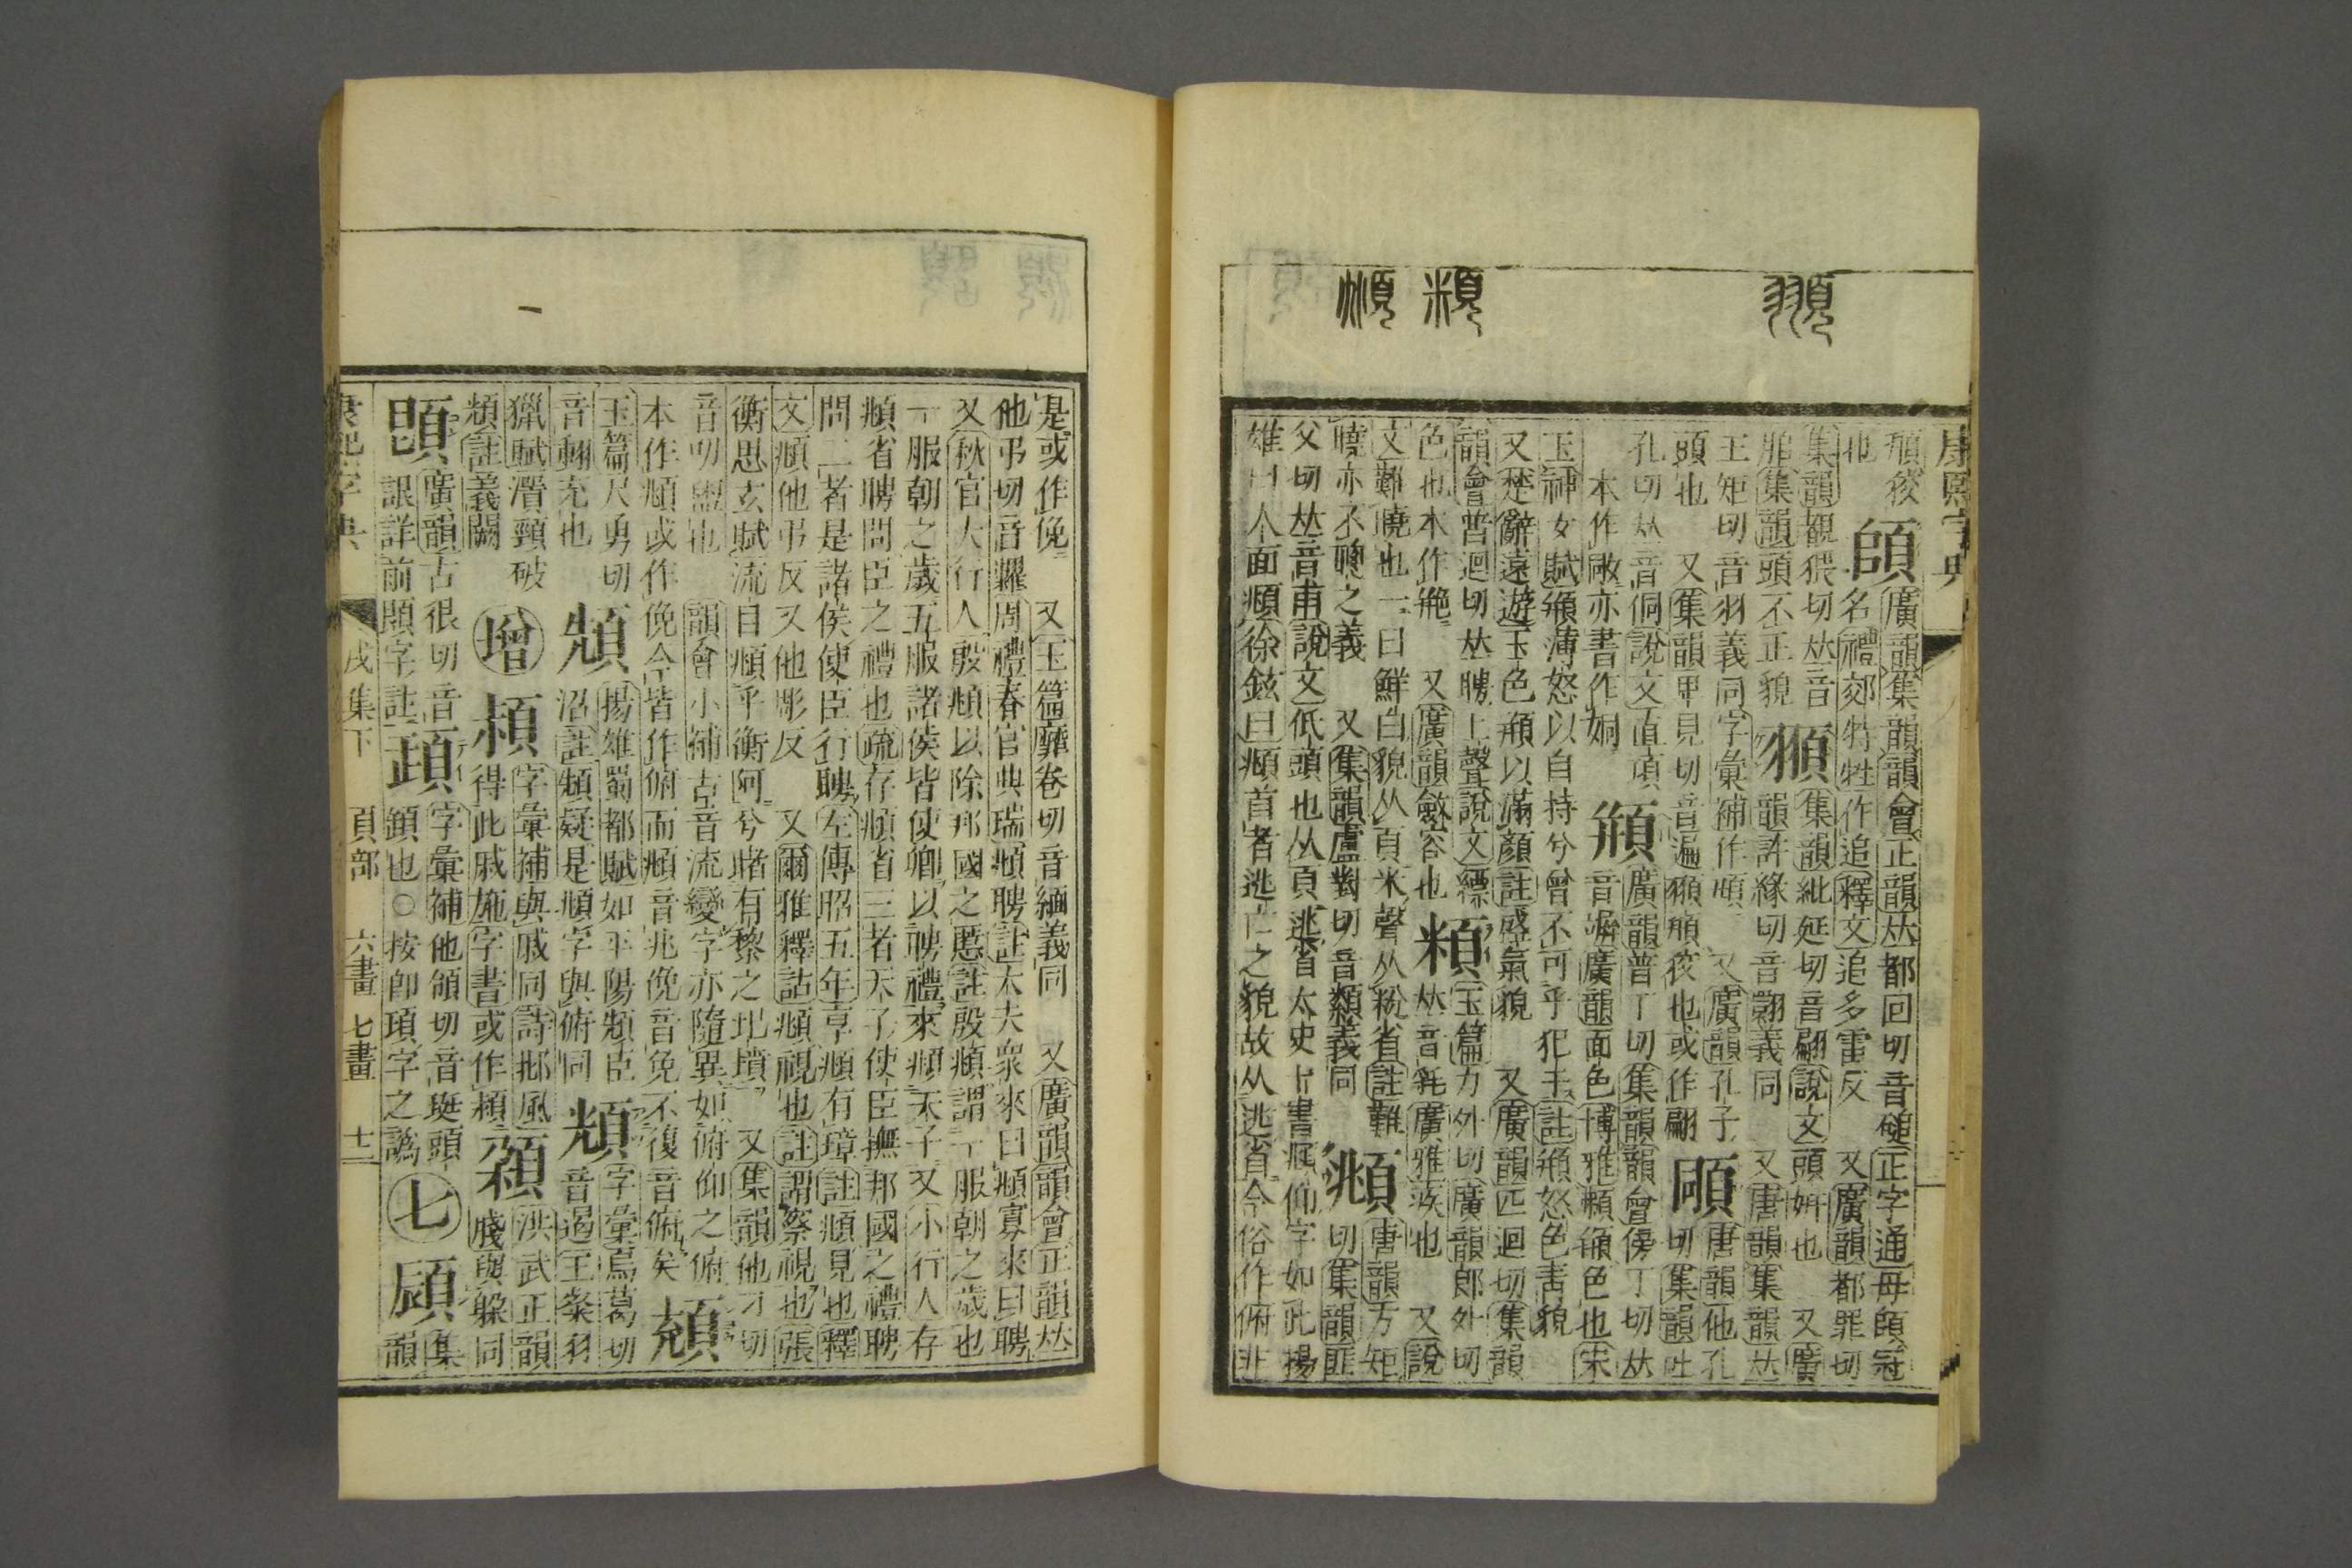 頯 頪 䫿
康熙字典
𩒮
也名禮郊特牲作追釋文追多雷反 又廣韻都罪切
廣韻集韻韻會正韻𠀤都回切音磓正字通毋頧冠
集韻覩猥切𠀤音
集韻紕延切音翩說文頭妍也 又廣
韻許緣切音翾義同 又唐韻集韻𠀤
王矩切音羽義同字彙補作 又廣韻孔子
頭也 又集韻甲見切音遍
唐韻他孔
切集韻吐
孔切𠀤音侗說文直項
本作㪉亦書作
頩
廣韻普丁切集韻韻會傍丁切𠀤
音 廣韻面色博雅 色也宋
玉神女賦頩薄怒以自持兮曾不可乎犯干註頩怒色靑貌
又楚辭遠遊玉色頩以 顏註盛氣貌 又廣韻匹迥切集韻
韻會普迥切𠀤 上聲說文縹
色也本作艵 又廣韻斂容也
頪
玉篇力外切廣韻郎外切
𠀤音 廣雅疾也 又說
文難曉也一曰鮮白貌从頁米聲从粉省註難
曉亦不聰之義 又集韻盧對切音類義同
頫
唐韻方矩
切集韻匪
父切𠀤音甫說文低頭也从頁逃省太史卜書頫仰字如此揚
雄曰人面頫徐鉉曰頫首者逃亡之貌故从逃省今俗作俯非
是或作俛 又玉篇靡卷切音緬義同 又廣韻韻會正韻𠀤
他弔切音糶周禮春官典瑞頫聘註大夫衆來曰頫寡來曰聘
又秋官大行人殷頫以除邦國之慝註殷頫謂一服朝之歲也
一服朝之歲五服諸侯皆使卿以聘禮來頫天子又小行人存
頫省聘問臣之禮也疏存頫省三者天子使臣撫邦國之禮聘
問二者是諸侯使臣行聘左傳昭五年享頫有璋註頫見也釋
文頫他弔反又他彫反 又爾雅釋詁頫視也註謂察視也張
衡思玄賦流目頫乎衡阿兮睹有黎之圮墳 又集韻他刁切
音 也 韻會小補古音流變字亦隨異如俯仰之俯
本作頫或作俛今皆作俯而頫音兆俛音免不復音俯矣
玉篇尺勇切
音 充也
揚雄蜀都賦如平陽 臣
沼註 疑是頫字與俯同
字彙烏葛切
音遏王粲羽
獵賦潛 破
註義闕
增
字彙補與戚同詩邶風
得此戚施字書或作
洪武正韻
與躲同
廣韻古很切音
詪詳前 字註
字彙補他頟切音珽頭
也○按卽頊字之譌
七
集
韻
康熙字典 戌集下 頁部 六畫 七畫 十二